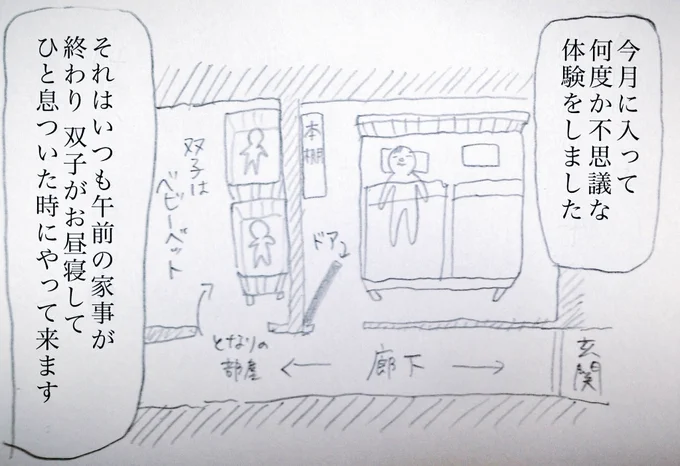 今月に入って
何度か不思議な
体験をしました
本棚
ドア
双子は
ベビーベット
となりの
部屋
廊下
玄関
それはいつも午前の家事が
終わり 双子がお昼寝して
ひと息ついた時にやって来ます